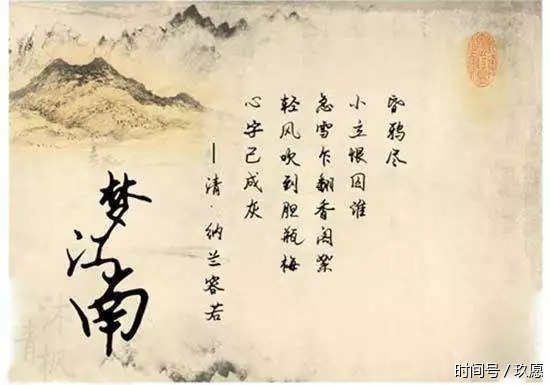 昏鸦尽
小立恨因谁
急雪乍翻香阁絮
轻风吹到胆瓶梅
心字已成灰
—清·纳兰容若
梦江南
时间号 / 玖愿